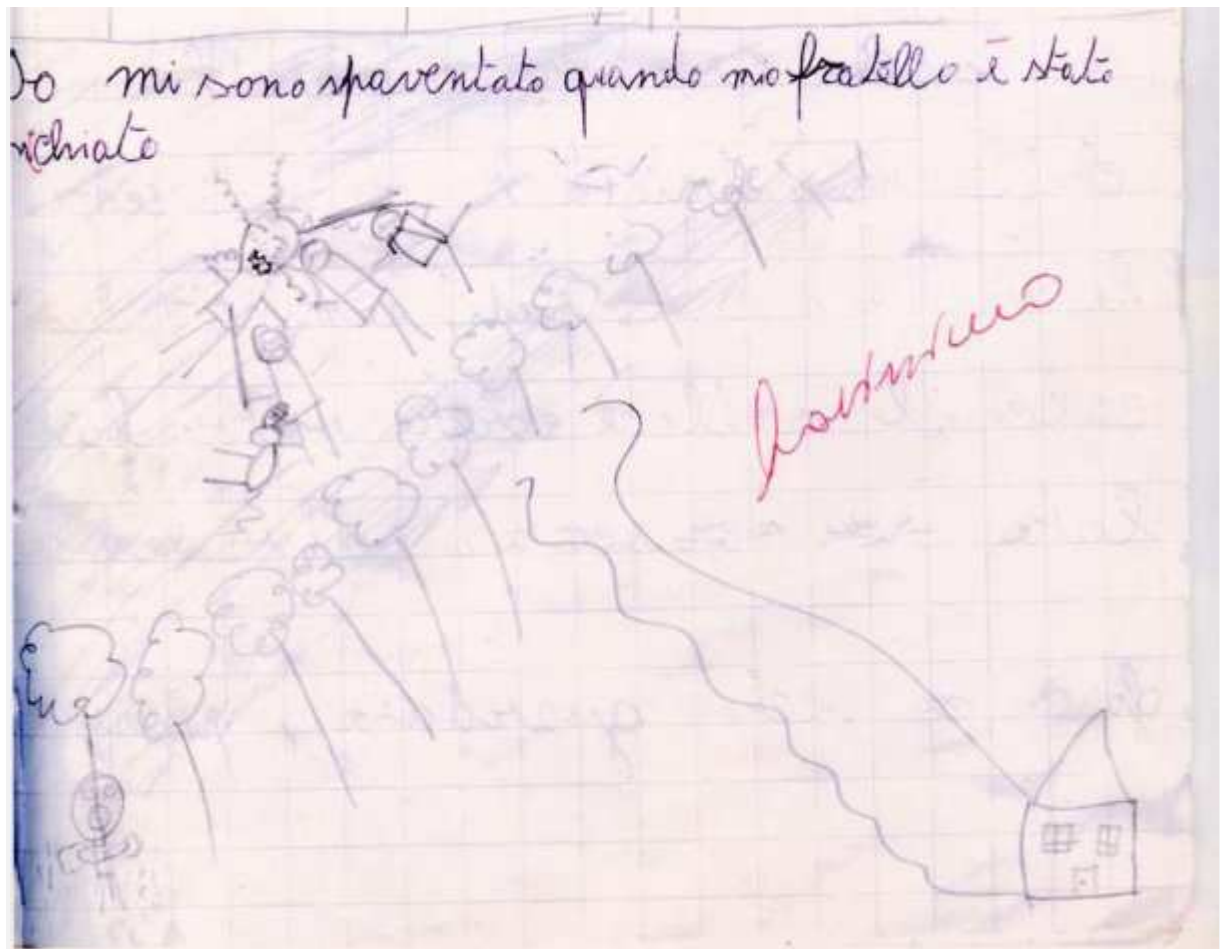 Io mi sono spaventato quando mio fratello è stato
bravissimo